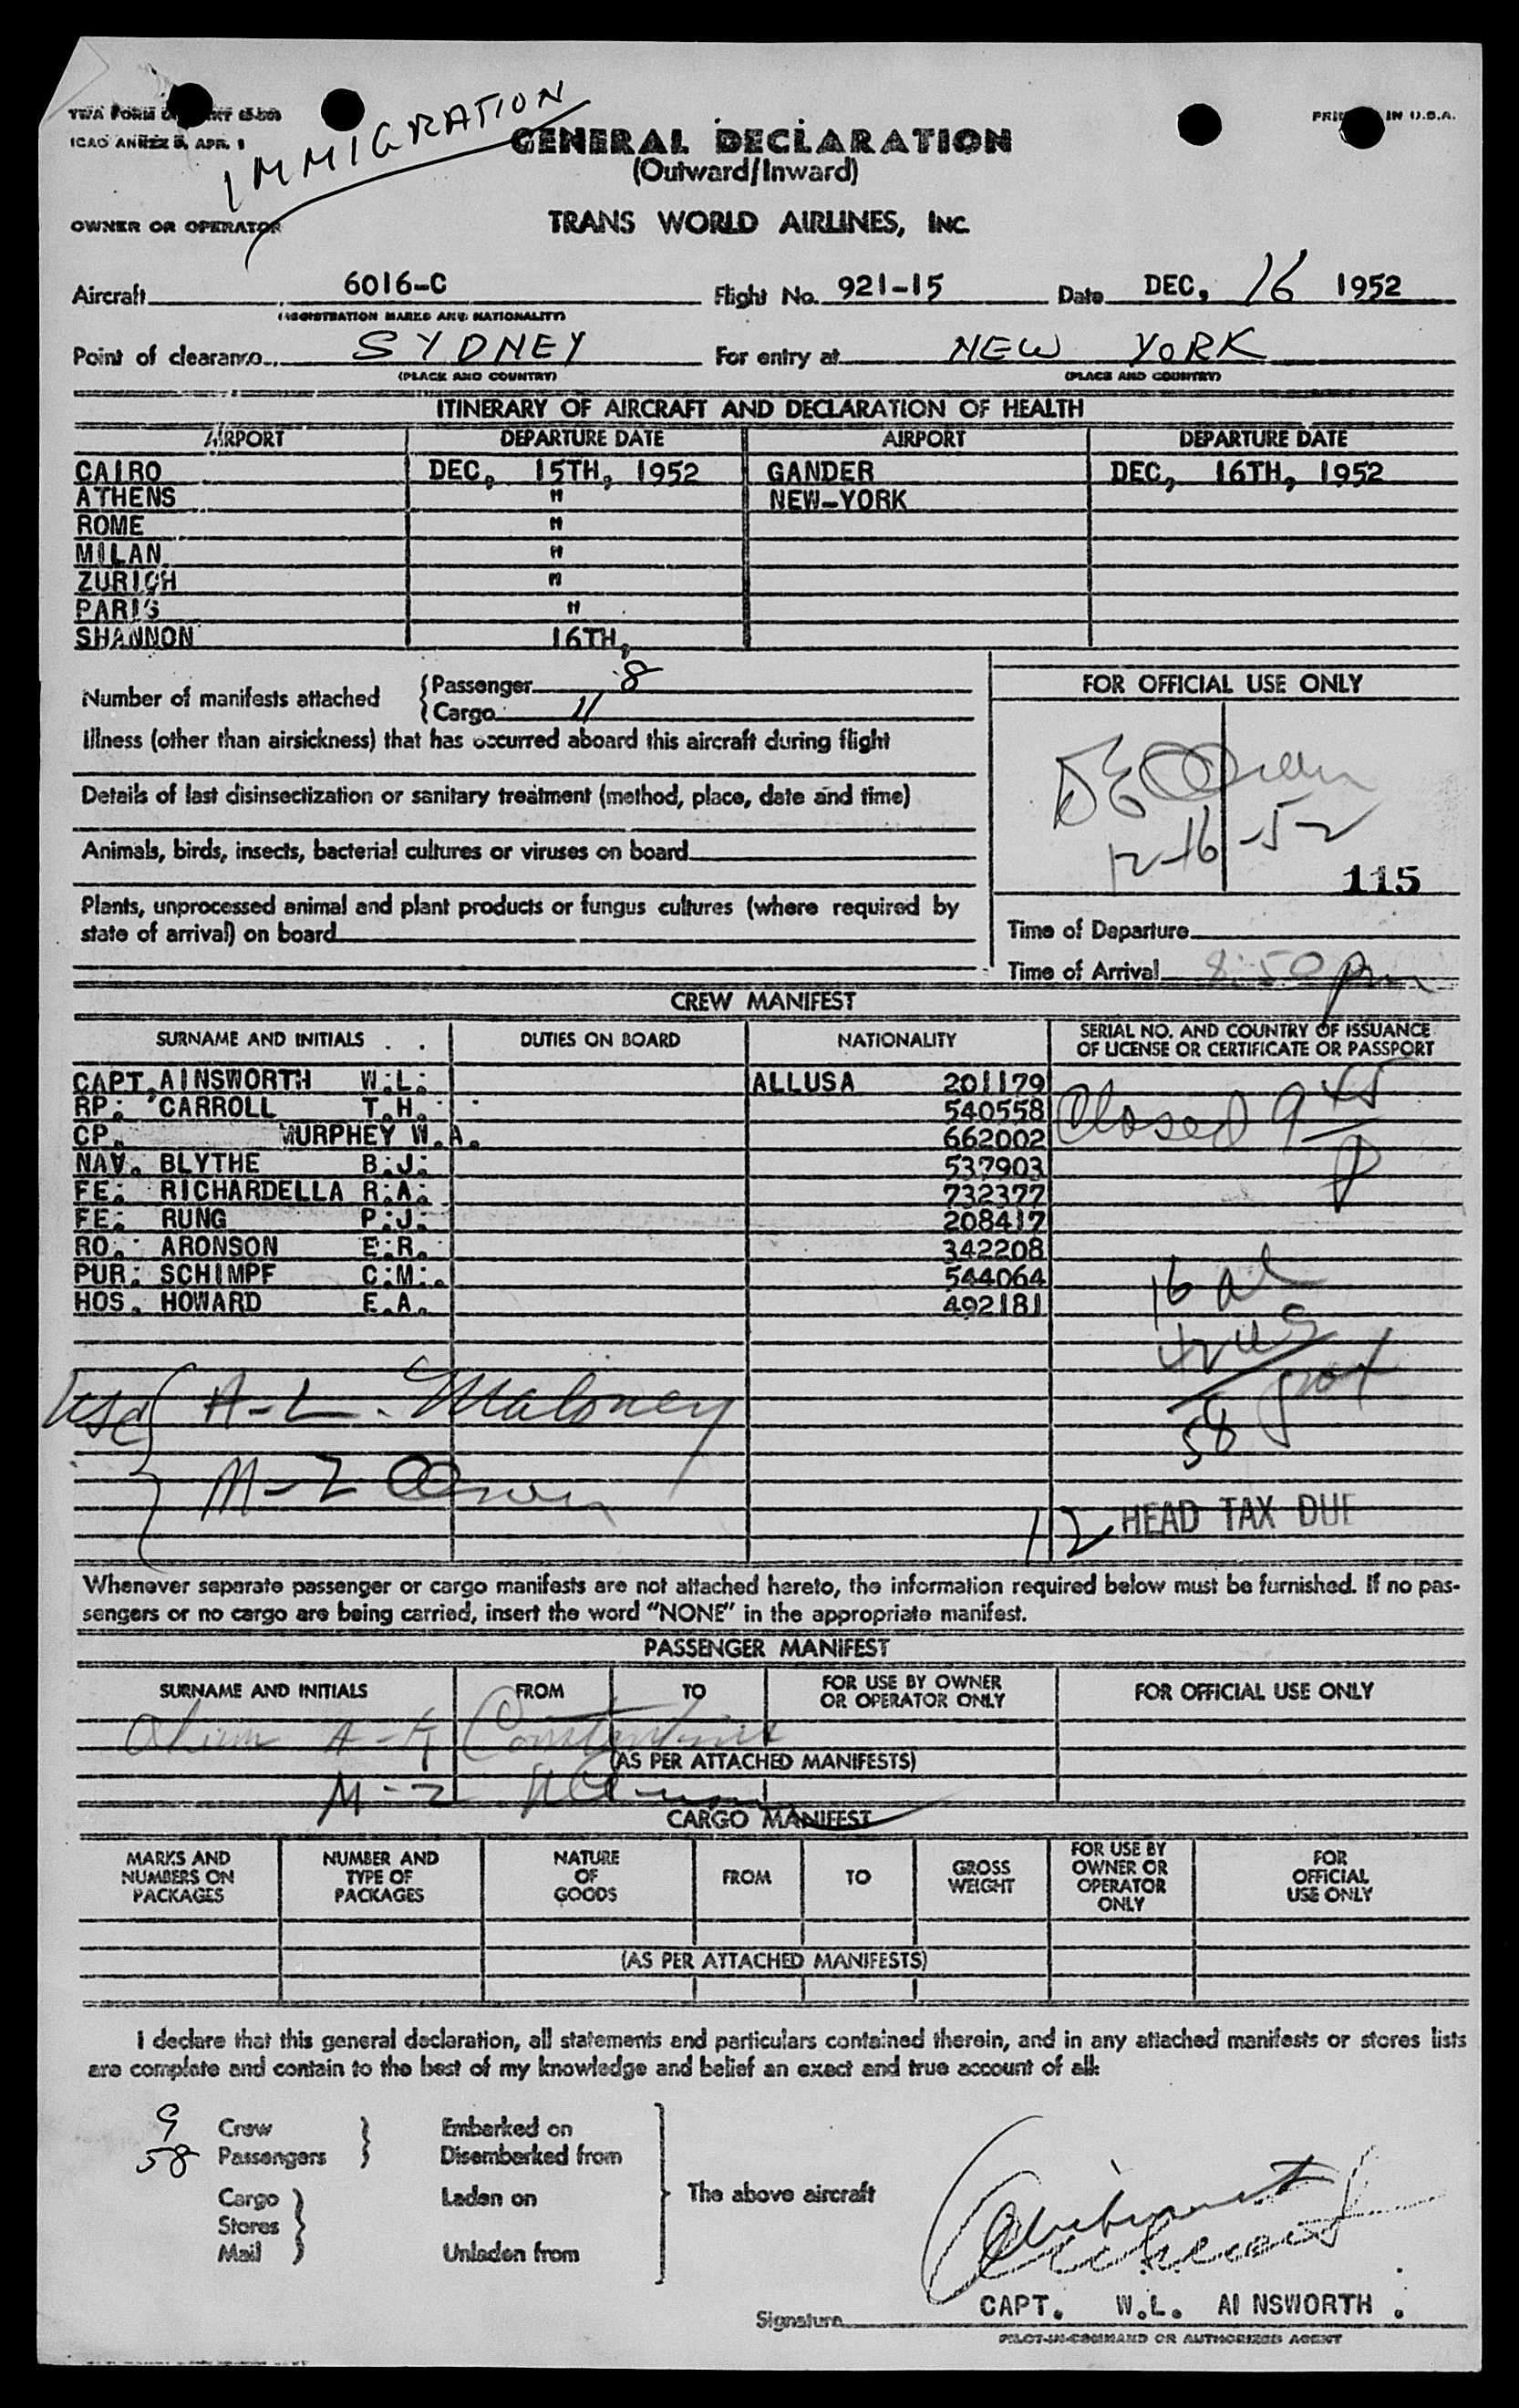 TWA FORM
PRINTED IN U.S.A.
ICAO ANNEX 9, APR. 1
IMMIGRATION
GENERAL DECLARATION
(Outward/Inward)
OWNER OR OPERATOR TRANS WORLD AIRLINES, INC.
Aircraft 6016-C Flight No. 921-15 Date DEC, 16 1952
(REGISTRATION MARKS AND NATIONALITY)
Point of clearance SYDNEY For entry at NEW YORK
(PLACE AND COUNTRY) (PLACE AND COUNTRY)
ITINERARY OF AIRCRAFT AND DECLARATION OF HEALTH
AIRPORT DEPARTURE DATE AIRPORT DEPARTURE DATE
CAIRO DEC, 15TH, 1952 GANDER DEC, 16TH, 1952
ATHENS " NEW-YORK
ROME "
MILAN "
ZURICH "
PARIS "
SHANNON 16TH,
Number of manifests attached { Passenger 8
{ Cargo 11
Illness (other than airsickness) that has occurred aboard this aircraft during flight
Details of last disinsectization or sanitary treatment (method, place, date and time)
Animals, birds, insects, bacterial cultures or viruses on board
Plants, unprocessed animal and plant products or fungus cultures (where required by
state of arrival) on board
FOR OFFICIAL USE ONLY
12-16-52
115
Time of Departure
Time of Arrival 8:50 pm
CREW MANIFEST
SURNAME AND INITIALS DUTIES ON BOARD NATIONALITY SERIAL NO. AND COUNTRY OF ISSUANCE
OF LICENSE OR CERTIFICATE OR PASSPORT
CAPT. AINSWORTH W.L. ALLUSA 201179
RP: CARROLL T.H. 540558 Closed 9 45
CP. MURPHEY W.A. 662002 P
NAV. BLYTHE B.J. 537903
FE: RICHARDELLA R.A. 732377
FE: RUNG P.J. 208417
RO. ARONSON E.R. 342208
PUR: SCHIMPF C.M. 544064 16 al
HOS. HOWARD E.A. 492181
42 US
USA { A-L. Maloney 58
M-2
12 HEAD TAX DUE
Whenever separate passenger or cargo manifests are not attached hereto, the information required below must be furnished. If no pas-
sengers or no cargo are being carried, insert the word "NONE" in the appropriate manifest.
PASSENGER MANIFEST
SURNAME AND INITIALS FROM TO FOR USE BY OWNER
OR OPERATOR ONLY FOR OFFICIAL USE ONLY
A-K Constantine
(AS PER ATTACHED MANIFESTS)
M-Z
CARGO MANIFEST
MARKS AND
NUMBERS ON
PACKAGES
NUMBER AND
TYPE OF
PACKAGES
NATURE
OF
GOODS
FROM
TO
GROSS
WEIGHT
FOR USE BY
OWNER OR
OPERATOR
ONLY
FOR
OFFICIAL
USE ONLY
(AS PER ATTACHED MANIFESTS)
I declare that this general declaration, all statements and particulars contained therein, and in any attached manifests or stores lists
are complete and contain to the best of my knowledge and belief an exact and true account of all:
9 Crew } Embarked on
58 Passengers } Disembarked from
Cargo } Laden on The above aircraft
Stores
Mail } Unladen from
Signature CAPT. W.L. AINSWORTH.
PILOT-IN-COMMAND OR AUTHORIZED AGENT